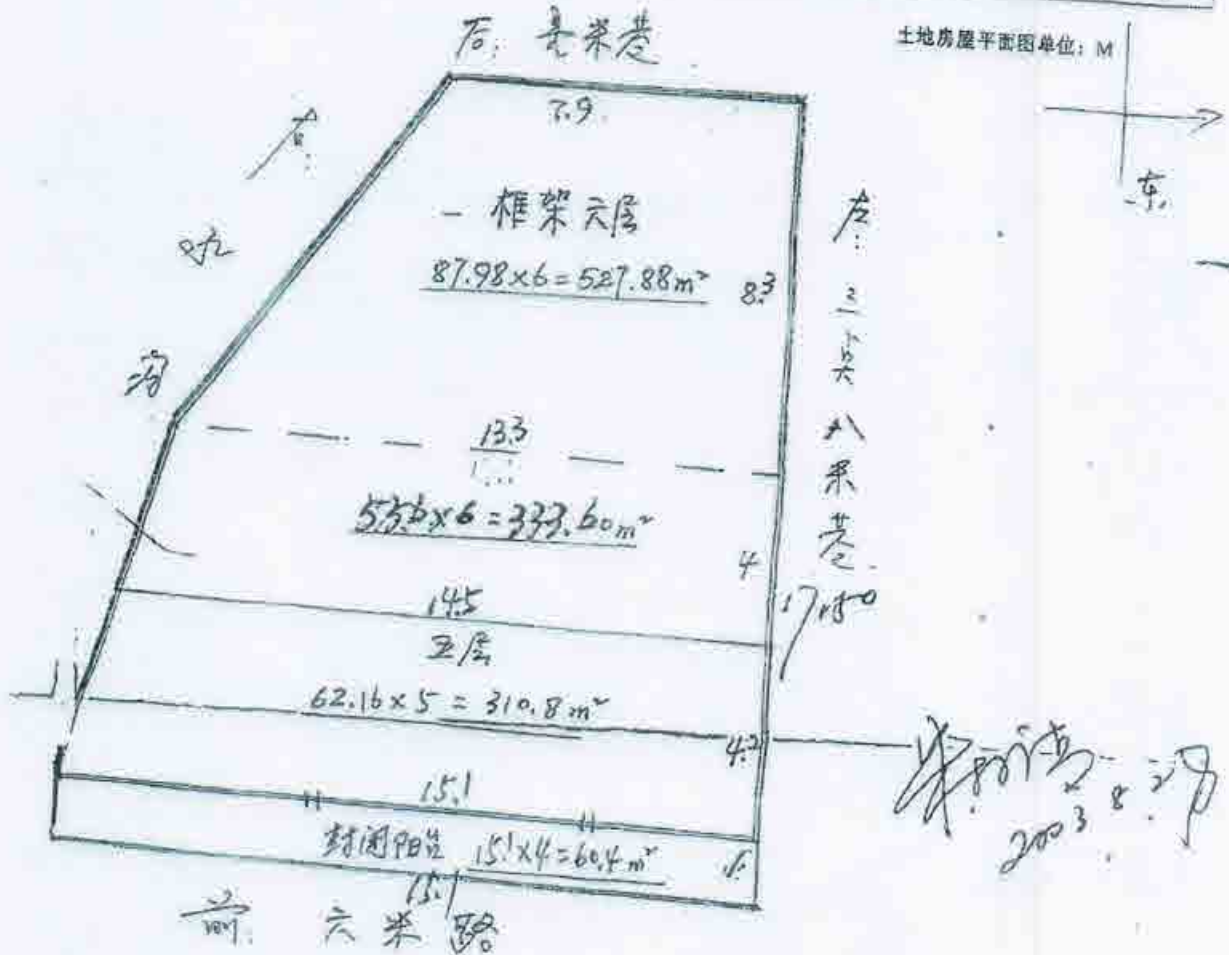 土地房屋平面图单位：M
东
后: 米巷
7.9
右:
框架六层
87.98×6=527.88m²
8.3
左:
三
八
米
巷
沟
13.3
55.6×6=333.60m²
4
17.50
14.5
五层
62.16×5=310.8m²
4.2
15.1
封闭阳台 15.1×4=60.4m²
1.
15.1
前. 六米路
2003.8.29